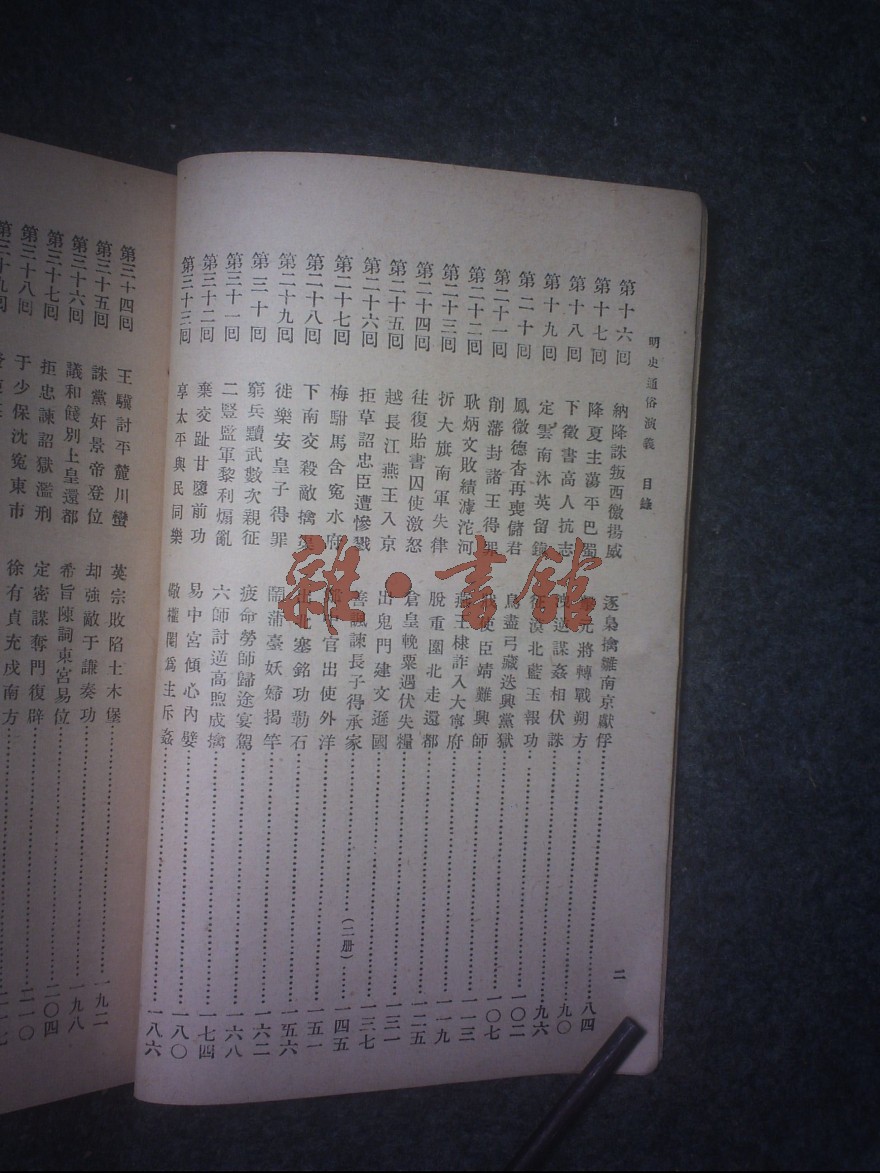 明史通俗演義 目錄
二
第十六回 納降誅叛西徼揚威 逐梟擒雛南京獻俘 八四
第十七回 降夏主蕩平巴蜀 元將轉戰朔方 九〇
第十八回 下徵書高人抗志 逆謀姦相伏誅 九六
第十九回 定雲南沐英留鎮 漠北藍玉報功 一〇二
第二十回 鳳微德杳再喪儲君 鳥盡弓藏迭興黨獄 一〇七
第二十一回 削藩封諸王得罪 使臣靖難興師 一一三
第二十二回 耿炳文敗績滹沱河 燕王棣詐入大寧府 一一九
第二十三回 折大旗南軍失律 脫重圍北走還都 一二五
第二十四回 往復貽書囚使激怒 倉皇輓粟遇伏失糧 一三一
第二十五回 越長江燕王入京 出鬼門建文遜國 一三七
第二十六回 拒草詔忠臣遭慘戮 善諷諫長子得承家 (二册) 一四五
第二十七回 梅駙馬含冤水府 官出使外洋 一五一
第二十八回 下南交殺敵擒 出北塞銘功勒石 一五六
第二十九回 徙樂安皇子得罪 鬧蒲臺妖婦揭竿 一六二
第三十回 窮兵黷武數次親征 疲命勞師歸途宴駕 一六八
第三十一回 二豎監軍黎利煽亂 六師討逆高煦成擒 一七四
第三十二回 棄交趾甘隳前功 易中宮傾心內嬖 一八〇
第三十三回 享太平與民同樂 敬權閹爲主斥姦 一八六
第三十四回 王驥討平麓川蠻 英宗敗陷土木堡 一九二
第三十五回 誅黨奸景帝登位 却強敵于謙奏功 一九八
第三十六回 議和餞別上皇還都 希旨陳詞東宮易位 二〇四
第三十七回 拒忠諫詔獄濫刑 定密謀奪門復辟 二一〇
第三十八回 于少保沈冤東市 徐有貞充戍南方 二一七
第三十九回
雜·書館